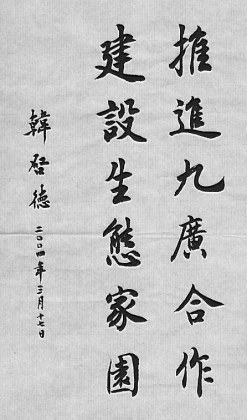 推進九廣合作
建設生態家園
韓啓德
二〇〇四年三月十七日